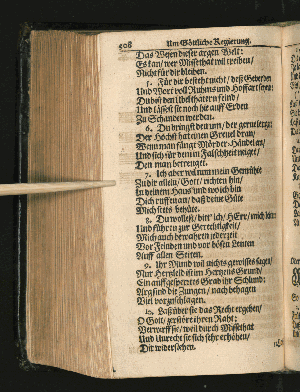 508 Um Göttliche Regierung.
Das Wesen dieser argen Welt:
Es kan/ wer Missethat wil treiben/
Nicht für dir bleiben.
5. Für dir besteht nicht/ daß
Und Wort voll Ruhms und Hoffart seyn:
Du bist den Übelthätern feind/
Und lässest sie noch hie auff Erden
Zu Schanden werden.
6. Du bringst den um/ der gerne leugt:
Der Höchst hat einen Greuel dran/
Wenn man fänge Mörder-Händel an/
Und sich für deinem Falschheit
Den man betreuget.
7. Ich aber wil nun mein Gemüthe
Zu dir allein/ Gott/ richten hin/
In deinem Haus und wo ich bin
Dich ruffen an/ daß deine Güte
Mich stets behüte.
8. Du wollest/ bitt' ich/ HErr/ mich
Und führen zur Gerechtigkeit/
Mich auch bewahren jederzeit
Vor Feinden und vor bösen Leuten
Auff allen Seiten.
9. Ihr Mund wil nichts gewisses sagen/
Nur Hertzleid ist im Hertzens Grund/
Ein auffgesperrtes Grab ihr Schlund:
Arg sind die Zungen/ nach behagen
Viel vorzuschlagen.
10. Laß über sie das Recht ergehen/
O Gott/ zerstöre ihren Raht:
Verwirff sie/ weil durch Missethat
Und Unrecht sie sich sehr erhöhen/
Dir widerstehen.